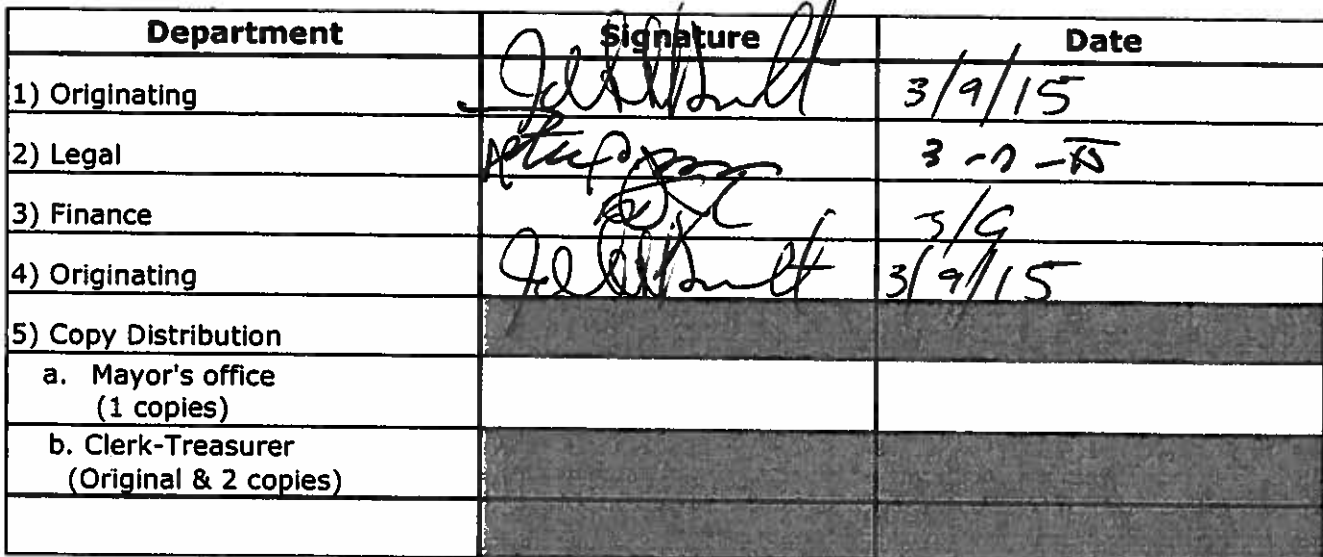 Department Signature Date
1) Originating 3/9/15
2) Legal
3) Finance 3/9
4) Originating 3/9/15
5) Copy Distribution
a. Mayor's office
(1 copies)
b. Clerk-Treasurer
(Original & 2 copies)